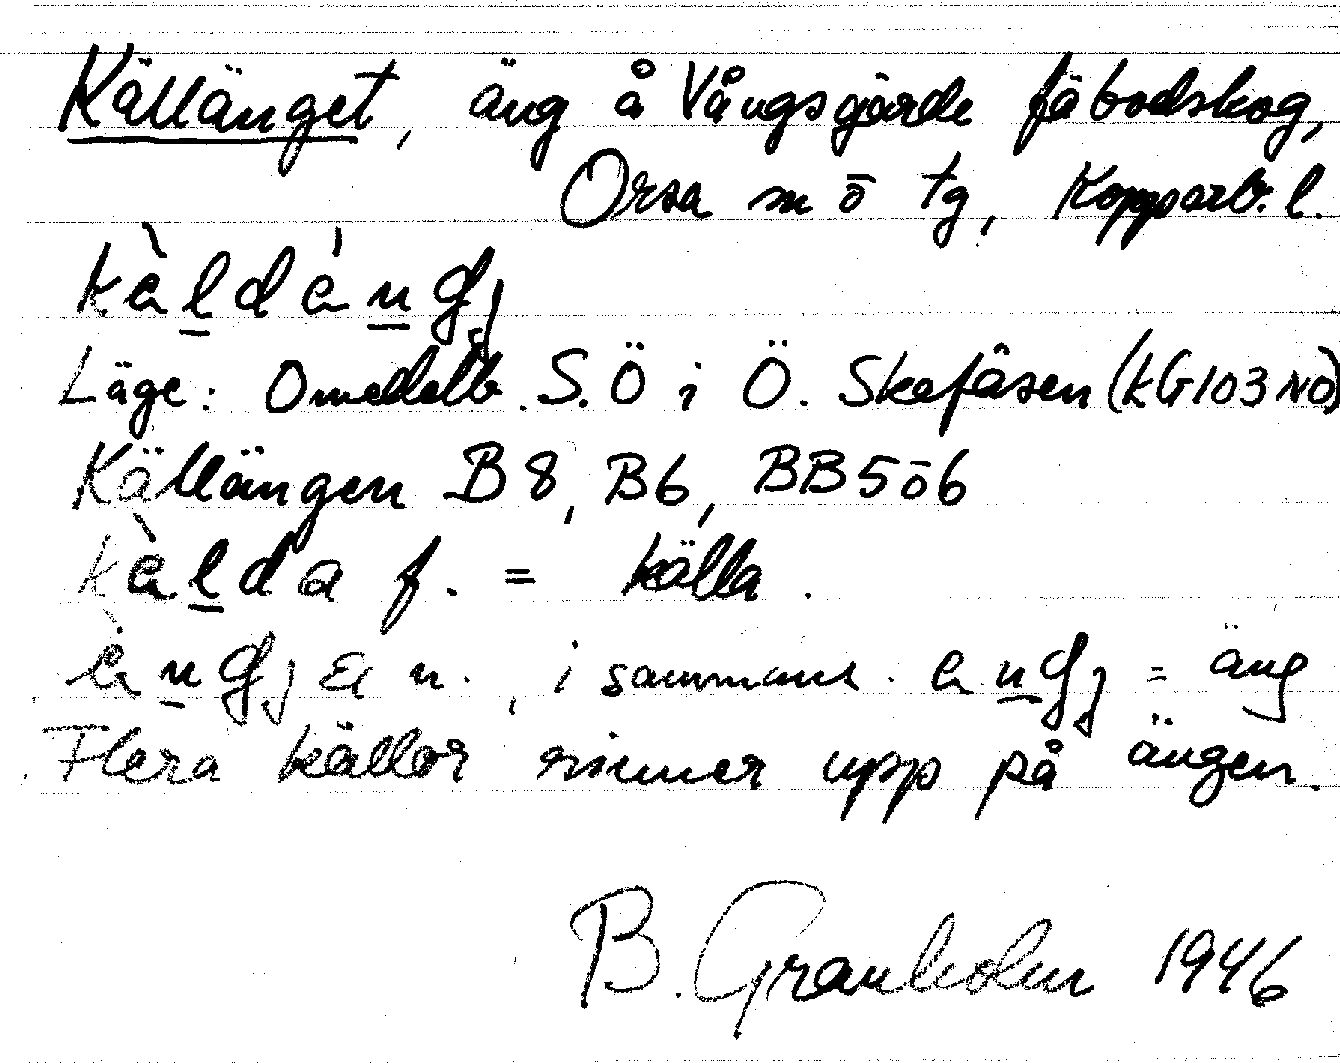 Källänget, äng å Vångsgärde fäbodskog,
Orsa sn ō tg, Kopparb. l.
Läge: Omedelb. S.Ö i Ö. Skefåsen (KG103 NO)
Källängen B8, B6, BB5ō6
kàlda f. = källa.
n., i sammans. = äng
Flera källor rinner upp på ängen.
B. Granholm 1946